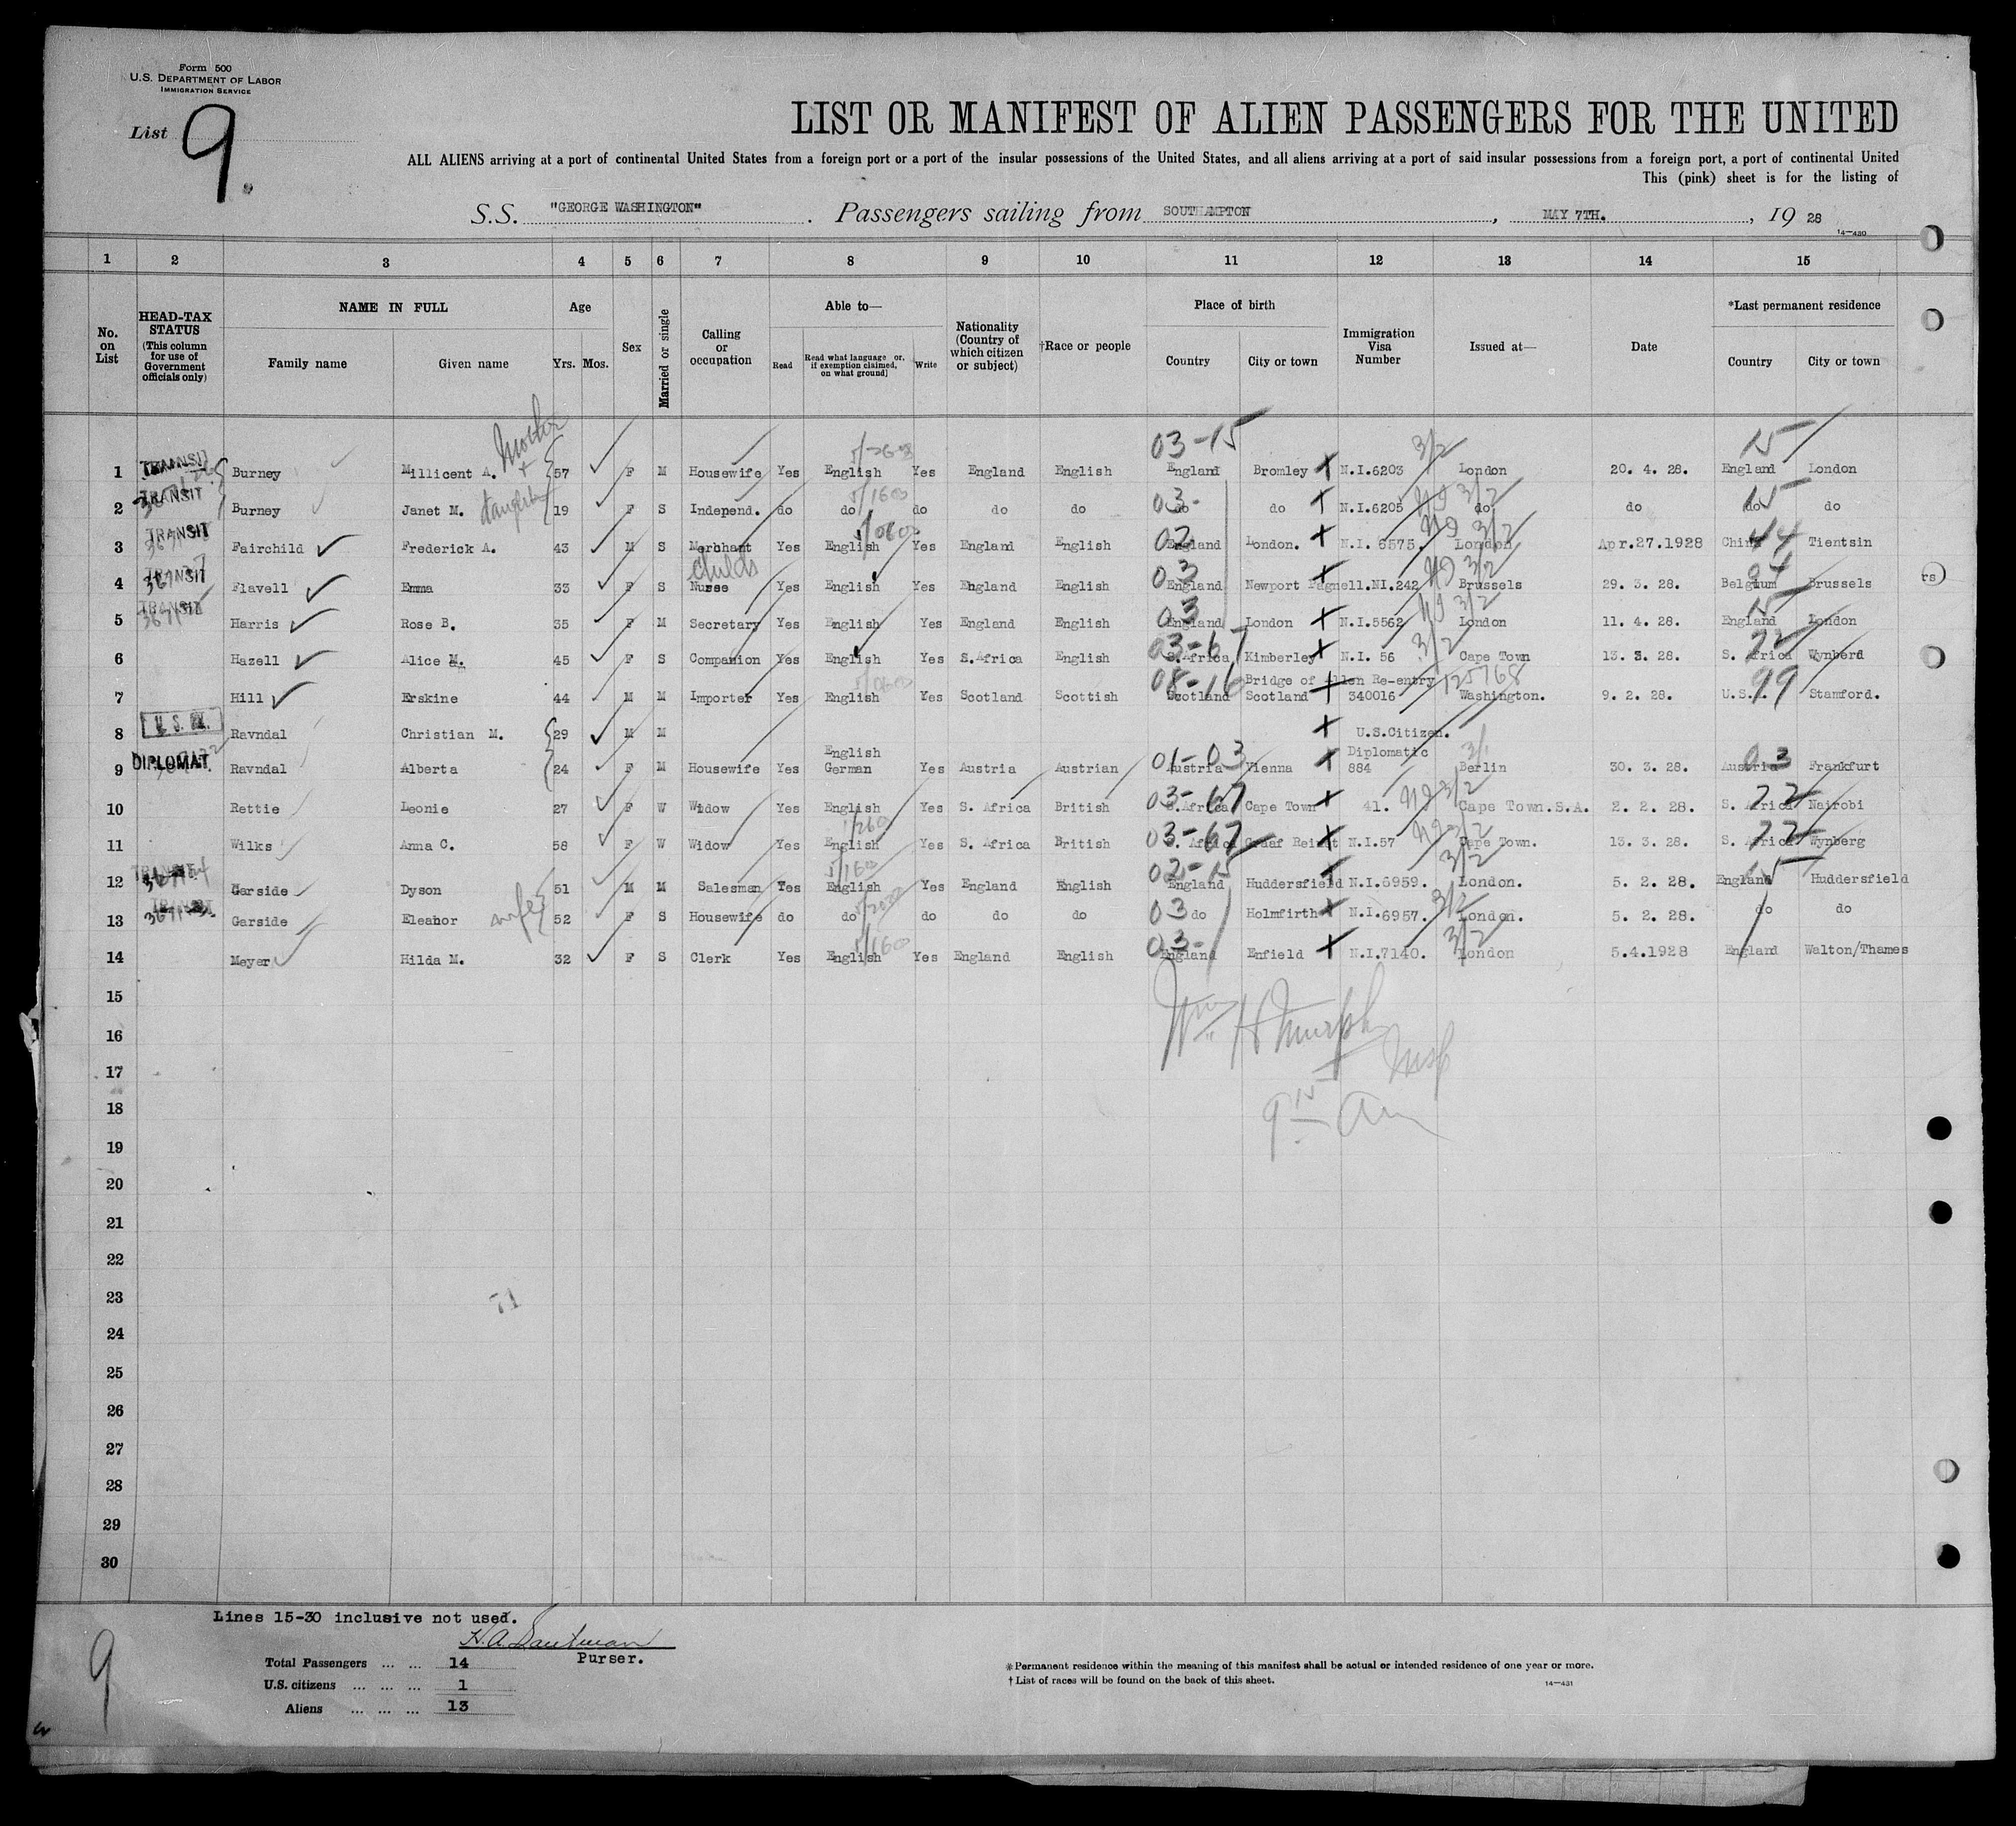 Form 500
U.S. DEPARTMENT OF LABOR
IMMIGRATION SERVICE
List 9.
LIST OR MANIFEST OF ALIEN PASSENGERS FOR THE UNITED
ALL ALIENS arriving at a port of continental United States from a foreign port or a port of the insular possessions of the United States, and all aliens arriving at a port of said insular possessions from a foreign port, a port of continental United
This (pink) sheet is for the listing of
S.S. "GEORGE WASHINGTON". Passengers sailing from SOUTHAMPTON, MAY 7TH., 19 28
14-430
1 2 3 4 5 6 7 8 9 10 11 12 13 14 15
No. on List
HEAD-TAX STATUS (This column for use of Government officials only)
NAME IN FULL
Family name Given name
Age
Yrs. Mos.
Sex
Married or single
Calling or occupation
Able to—
Read Read what language or, if exemption claimed, on what ground] Write
Nationality (Country of which citizen or subject)
†Race or people
Place of birth
Country City or town
Immigration Visa Number
Issued at—
Date
*Last permanent residence
Country City or town
03-15 3/2 15
1 TRANSIT Burney Millicent A. Mother + 57 F M Housewife Yes English Yes England English England Bromley N.I.6203 London 20. 4. 28. England London
2 TRANSIT Burney Janet M. daughter 19 F S Independ. do do do do do 03- do do N.I.6205 3/2 do do 15 do do
3 TRANSIT Fairchild Frederick A. 43 M S Merchant Yes English Yes England English England London. N.I. 6575. 3/2 London Apr.27.1928 China 44 Tientsin
4 TRANSIT Flavell Emma 33 F S childs Nurse Yes English Yes England English 03 England Newport Pagnell.NI.242 3/2 Brussels 29. 3. 28. Belgium 04 Brussels
rs
5 TRANSIT Harris Rose B. 35 F M Secretary Yes English Yes England English 03 England London N.I.5562 3/2 London 11. 4. 28. 15 England London
6 Hazell Alice M. 45 F S Companion Yes English Yes S.Africa English 03-67 S.Africa Kimberley N.I. 56 3/2 Cape Town 13. 3. 28. S. Africa 72 Wynberd
7 Hill Erskine 44 M M Importer Yes English Yes Scotland Scottish 08-16 Scotland Bridge of Allen Scotland Re-entry 340016 125768 Washington. 9. 2. 28. U.S.A. 99 Stamford.
8 U.S. Ravndal Christian M. 29 M M U.S.Citizen.
9 DIPLOMAT Ravndal Alberta 24 F M Housewife Yes English German Yes Austria Austrian 01-03 Austria Vienna Diplomatic 884 3/1 Berlin 30. 3. 28. Austria 03 Frankfurt
10 Rettie Leonie 27 F W Widow Yes English Yes S. Africa British 03-67 S.Africa Cape Town 41. 3/2 Cape Town.S.A. 2. 2. 28. S. Africa 72 Nairobi
11 Wilks Anna C. 58 F W Widow Yes English Yes S. Africa British 03-67 S. Africa Graaf Reinet N.I.57 3/2 Cape Town. 13. 3. 28. S. Africa 72 Wynberg
12 Garside Dyson 51 M M Salesman Yes English Yes England English 02-15 England Huddersfield N.I.6959. 3/2 London. 5. 2. 28. England 15 Huddersfield
13 Garside Eleanor wife 52 F S Housewife do do do do do 03 do Holmfirth N.I.6957. 3/2 London. 5. 2. 28. do do
14 Meyer Hilda M. 32 F S Clerk Yes English Yes England English 03- England Enfield N.I.7140. 3/2 London 5.4.1928 England Walton/Thames
15
16
Wm H Murphy
17
18
9 15 am
19
20
21
22
23
71
24
25
26
27
28
29
30
Lines 15-30 inclusive not used.
Purser.
9
Total Passengers ... ... 14
U.S. citizens ... ... ... 1
Aliens ... ... ... 13
*Permanent residence within the meaning of this manifest shall be actual or intended residence of one year or more.
†List of races will be found on the back of this sheet.
14-431